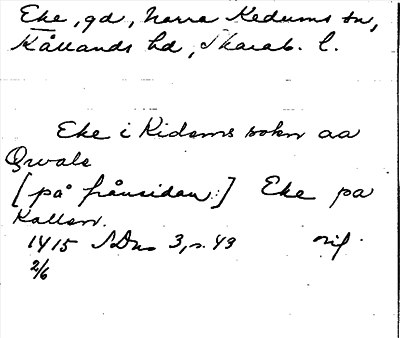 Eke, gd, Norra Kedums sn,
Kållands hd, Skarab. l.
Eke i Kidems sokn aa
Qwale
[på frånsidan:] Eke pa
Kallen.
1415 SDns 3, s. 49 orig.
2/6